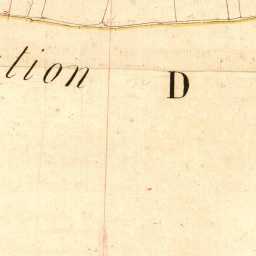 ction D